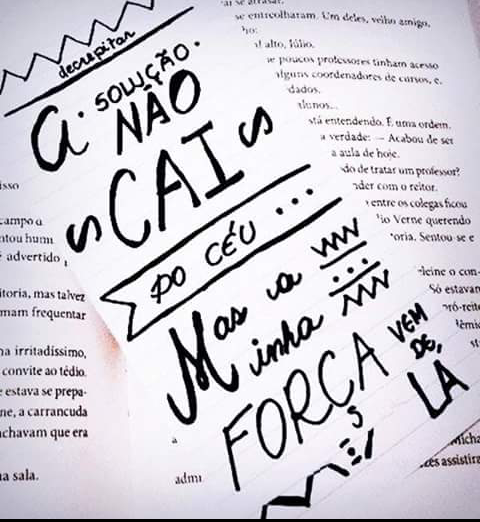 decrepitar
A SOLUÇÃO
NÃO
CAI
DO CÉU ...
Mas a
Minha
FORÇA VEM
DE LÁ
se entreolharam. Um deles, velho amigo,
alto, Júlio.
e poucos professores tinham acesso
alguns coordenadores de cursos, e,
dados.
alunos...
stá entendendo. É uma ordem.
a verdade: — Acabou de ser
a aula de hoje.
do de tratar um professor?
der com o reitor.
entre os colegas ficou
io Verne querendo
oria. Sentou-se e
leine o con-
Só estavam
ró-reit
s assistira
isso
campo a
ntou hum
advertido
itoria, mas talvez
mam frequentar
na irritadíssimo,
convite ao tédio.
e estava se prepa-
ne, a carrancuda
chavam que era
a sala.
a
admi